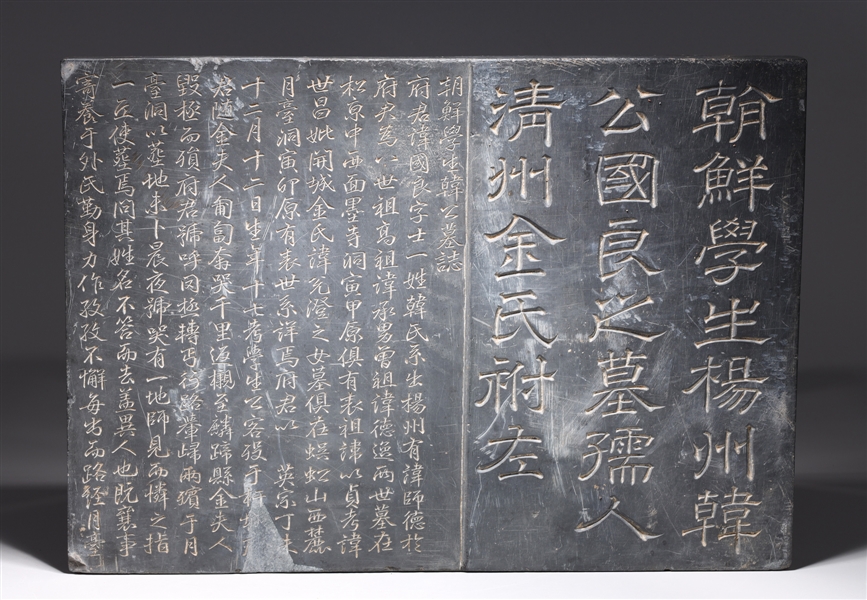 朝鮮學生楊州韓
公國良之墓孺人
清州金氏祔左
朝鮮學生韓公墓誌
府君諱國良字士一姓韓氏系出楊州有諱師德於
府君為八世祖高祖諱承男曾祖諱德逸兩世墓在
松京中西面墨寺洞寅甲原俱有表祖諱以貞考諱
世昌妣開城金氏諱克澄之女墓俱在蜈蚣山西麓
月臺洞寅卯原有表世系詳焉府君以 英宗丁未
十二月十二日生年十七考學生公客歿于
君隨金夫人匍匐奔哭千里返櫬至麟蹄縣金夫人
毀極而殞府君號呼罔極轉丐行路輦歸兩殯于月
臺洞以葬地未卜晨夜號哭有一地師見而憐之指
一丘使葬焉問其姓名不答而去盖異人也既襄事
寄養于外氏勤身力作孜孜不懈每出而路經月臺